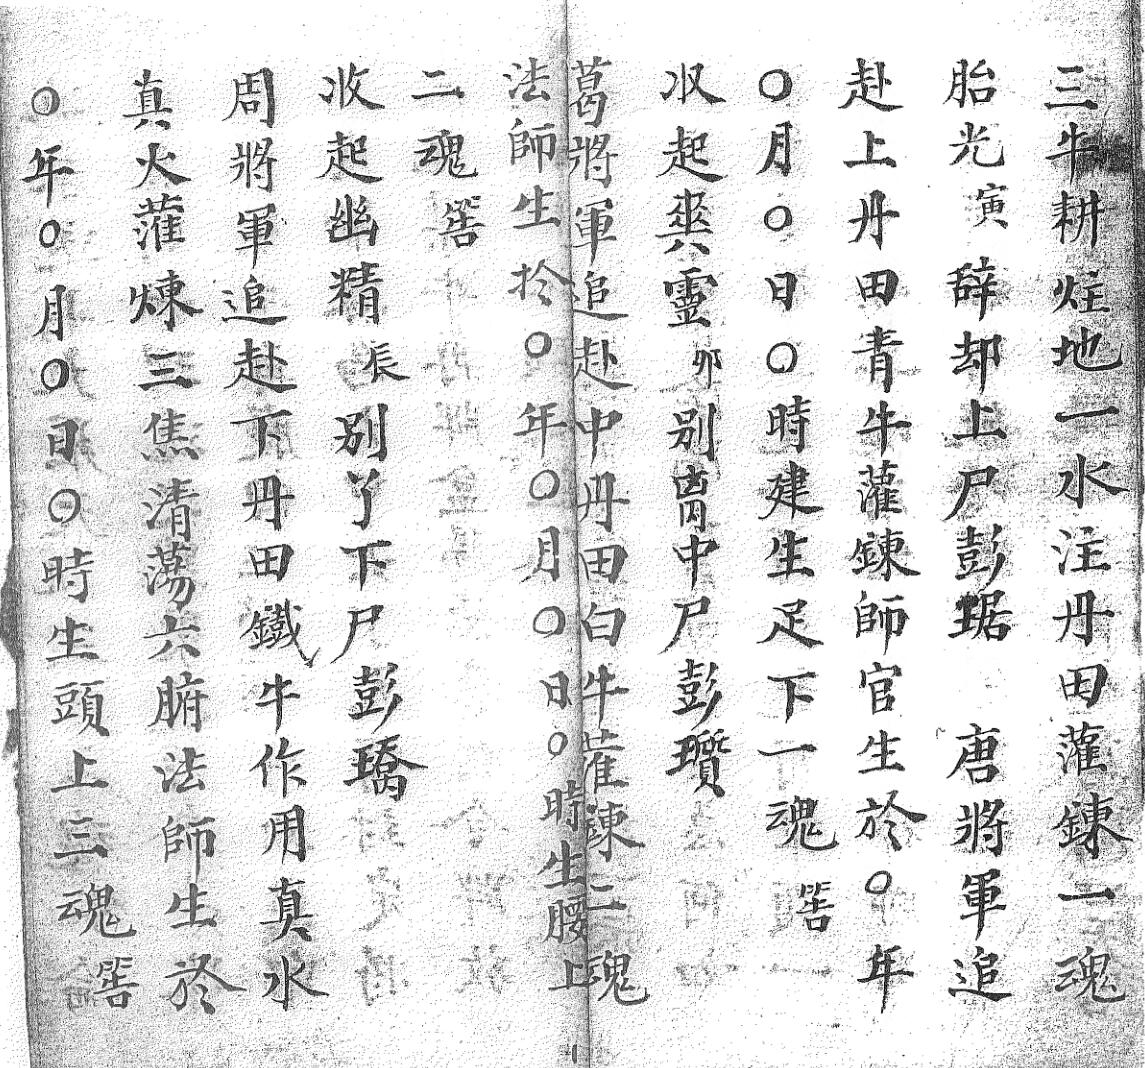 三牛耕炷地一水注丹田灌鍊一魂
胎光寅辞却上尸彭琚 唐將軍追
赴上丹田青牛灌鍊師官生於〇年
〇月〇日〇時建生足下一魂筶
収起爽靈卯别胷中尸彭瓚
葛將軍追赴中丹田白牛灌鍊二魂
法師生扵〇年〇月〇日〇時生腰上
二魂筶
收起幽精辰别丫下尸彭
周將軍追赴下丹田鐵牛作用真水
真火灌煉三焦清蕩六腑法師生於
〇年〇月〇日〇時生頭上三魂筶